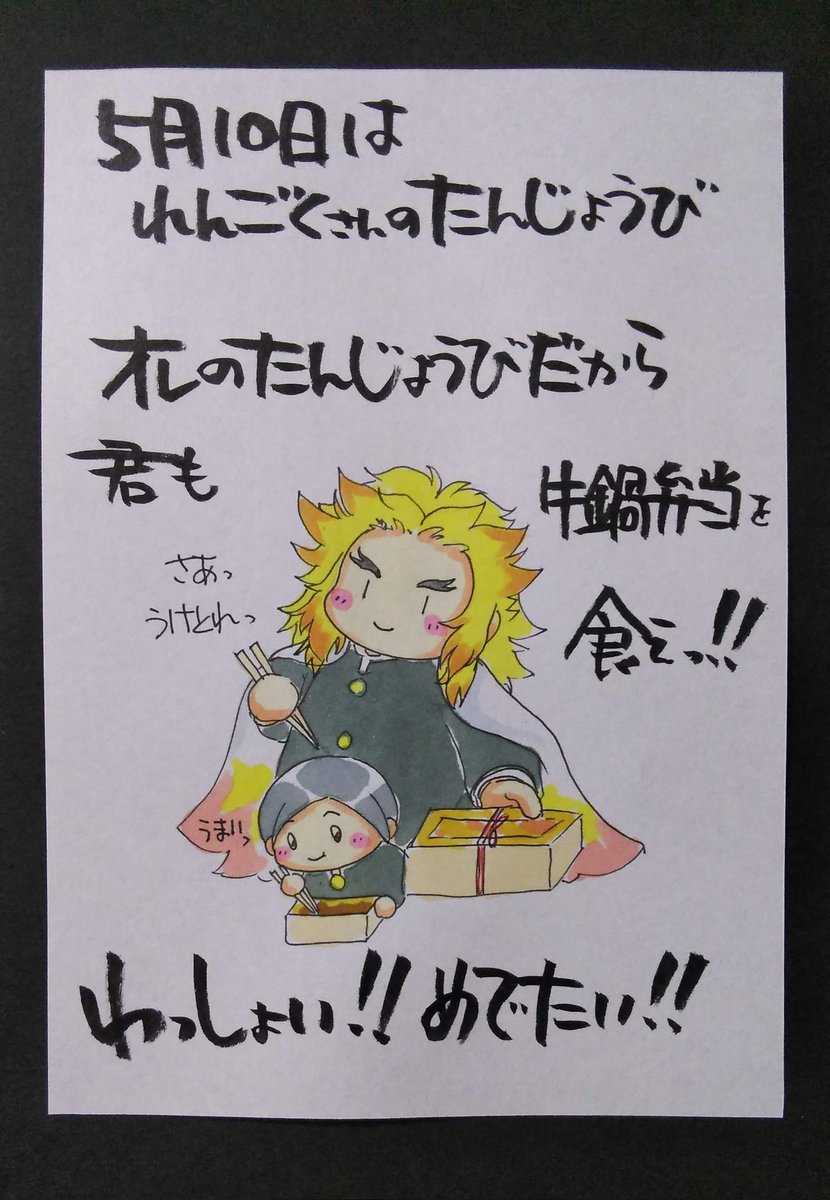 5月10日は
れんごくさんのたんじょうび
オレのたんじょうびだから
君も
牛鍋弁当を
食えっ!!
さあっ
うけとれっ
うまいっ
わっしょい!! めでたい!!